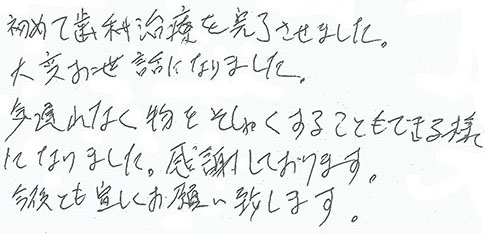 初めて歯科治療を完了させました。
大変お世話になりました。
気遅れなく物をそしゃくすることもできる様
になりました。感謝しております。
今後とも宜しくお願い致します。